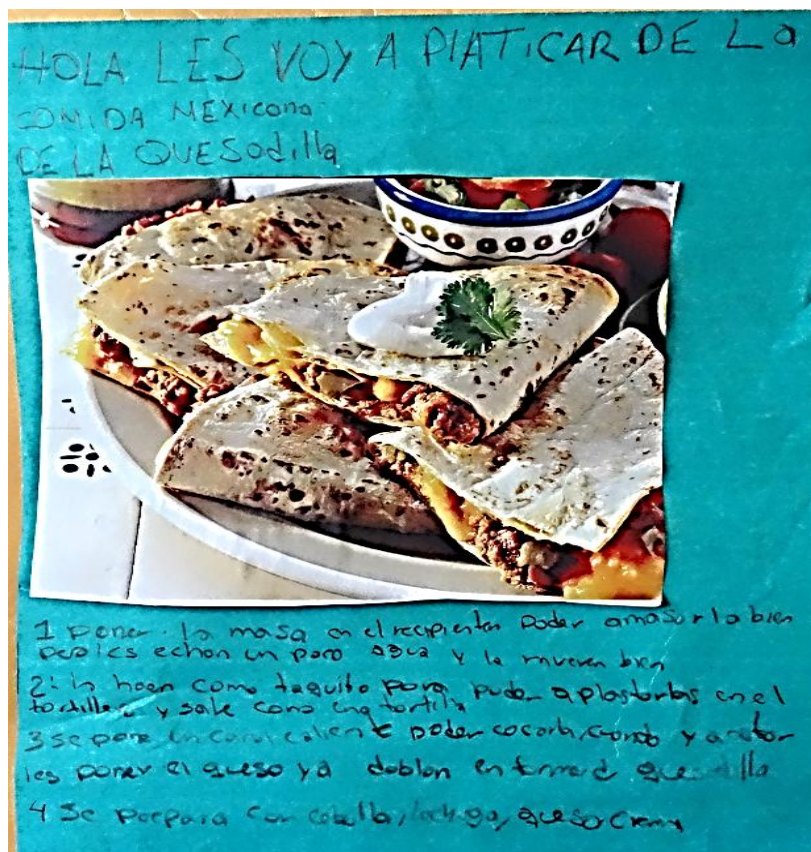 HOLA LES VOY A PlATiCAR DE La
COMiDA MEXicana
DE LA QUESOdilla
1 poner la masa en el recipiente Poder amasarla bien
echan un poco agua y la mueven bien
2: la hacen como taquito para poder aplastarlas en el
y sale como una tortilla
3 se pone un comal caliente poder cocerla, cuando ya
les poner el queso ya doblan en forma d quesadilla
4 Se prepara con cebolla, lechuga, queso crema